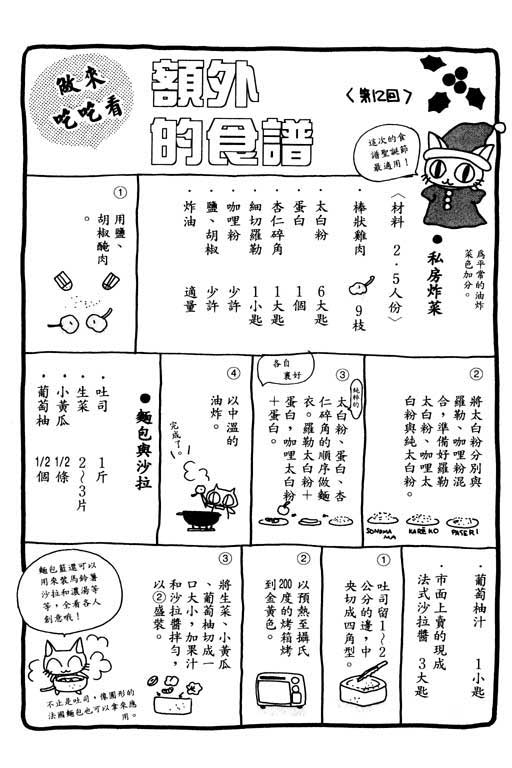 做來
吃吃看
額外
的食譜
〈第12回〉
這次的食
譜聖誕節
最適用！
為平常的油炸
菜色加分。
●私房炸菜
〈材料 2.5人份〉
・棒狀雞肉 9枝
・太白粉 6大匙
・蛋白 1個
・杏仁碎角 1大匙
・細切羅勒 1小匙
・咖哩粉 少許
・鹽、胡椒 少許
・炸油 適量
①
用鹽、
胡椒醃肉
。
②
將太白粉分別與
羅勒、咖哩粉混
合，準備好羅勒
太白粉、咖哩太
白粉與純太白粉。
SONOMAMA
KAREKO
PASERI
③
純粹的
太白粉、蛋白、杏
仁碎角的順序做麵
衣。羅勒太白粉＋
蛋白，咖哩太白粉
＋蛋白。
各自
裹好
④
以中溫的
油炸。
完成了。
●麵包與沙拉
・吐司 1斤
・生菜 2～3片
・小黃瓜 1/2條
・葡萄柚 1/2個
・葡萄柚汁 1小匙
・市面上賣的現成
法式沙拉醬 3大匙
①
吐司留1～2
公分的邊，中
央切成四角型。
②
以預熱至攝氏
200度的烤箱烤
到金黃色。
③
將生菜、小黃瓜
、葡萄柚切成一
口大小，加果汁
和沙拉醬拌勻，
以②盛裝。
麵包籃還可以
用來裝馬鈴薯
沙拉和濃湯等
等，全看各人
創意哦！
不止是吐司，像圓形的
法國麵包也可以拿來應
用。